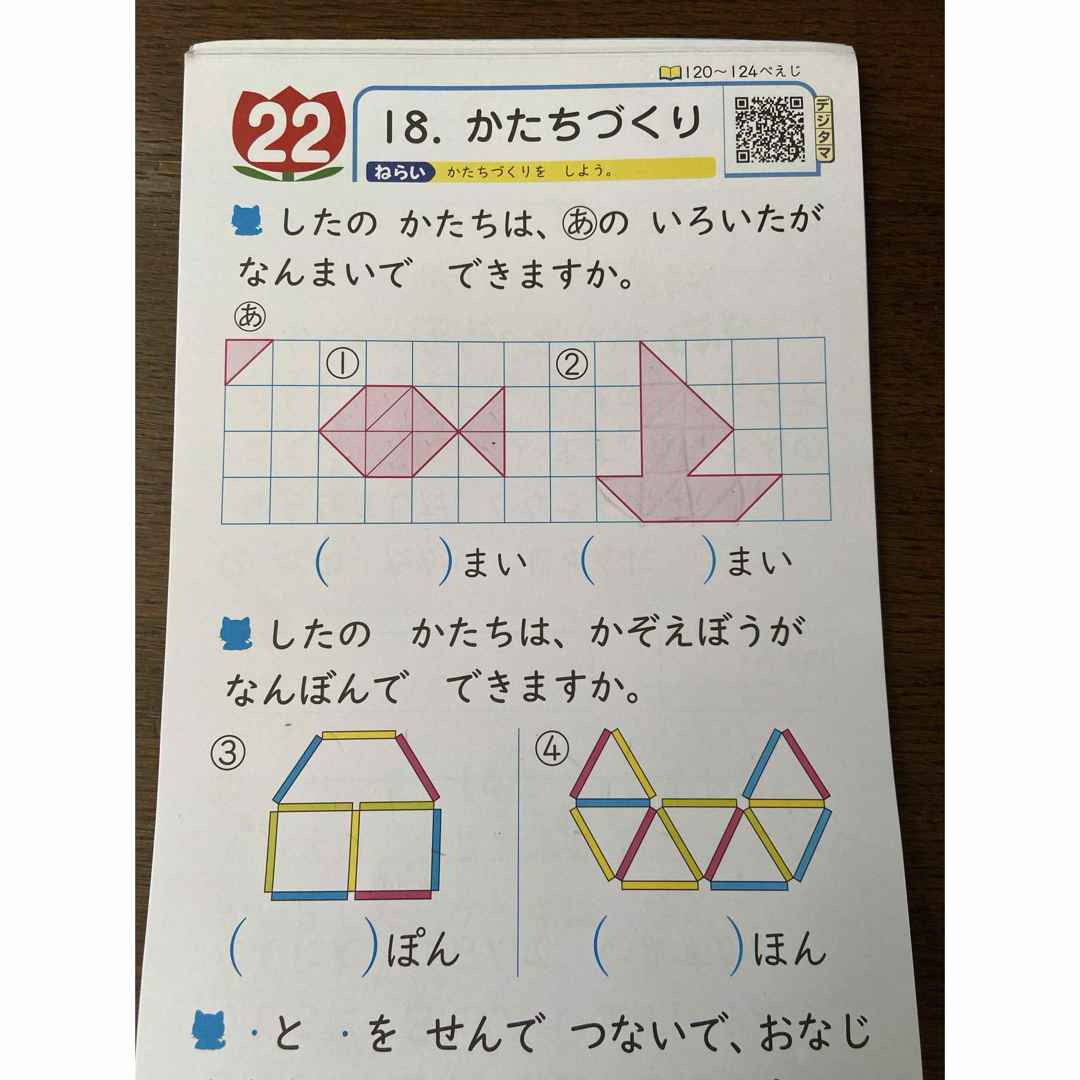 120〜124ぺえじ
22
18. かたちづくり
デジタマ
ねらい かたちづくりを しよう。
したの かたちは、あの いろいたが
なんまいで できますか。
あ
① ②
( )まい ( )まい
したの かたちは、かぞえぼうが
なんぼんで できますか。
③ ④
( )ぽん ( )ほん
・と ・を せんで つないで、おなじ